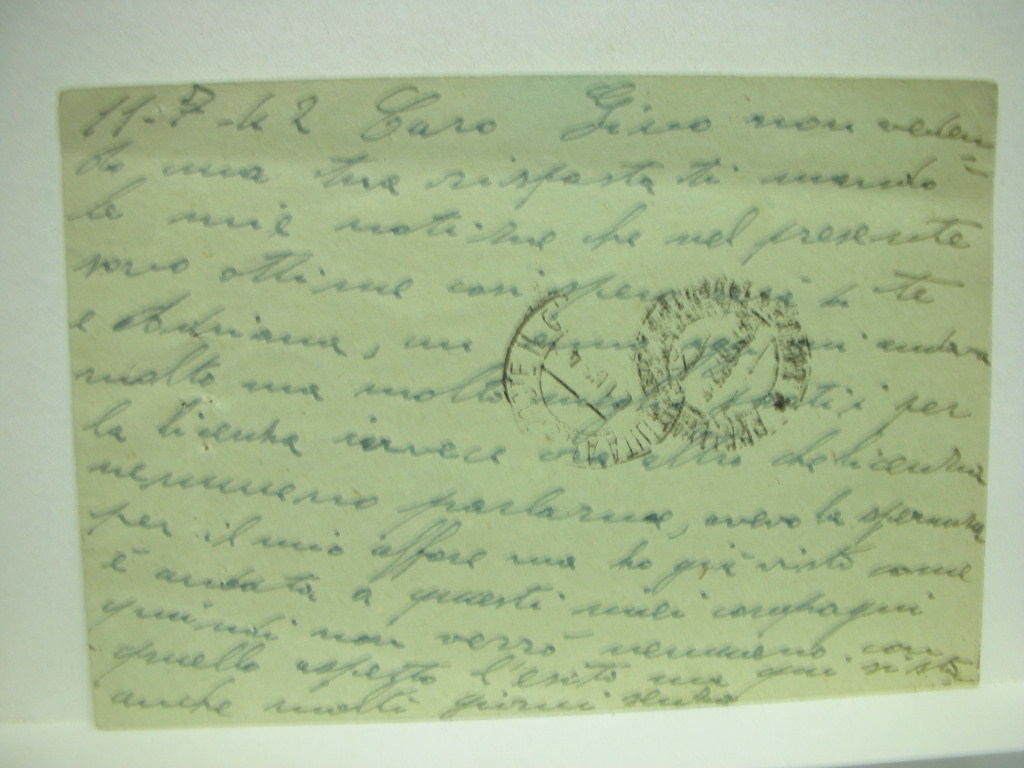 11-7-42 Caro Gino non veden=
do una tua risposta ti mando
le mie notizie che nel presente
sono ottime così spero di te
e Adriana, un andava
molto ma molto per
la licenza invece altro che licenza
nemmeno parlarne, avevo la speranza
per il mio affare ma ho già visto come
è andata a questi miei compagni
quindi non verrò nemmeno con
quello aspetto l'esito ma qui si sta
anche molti giorni senza